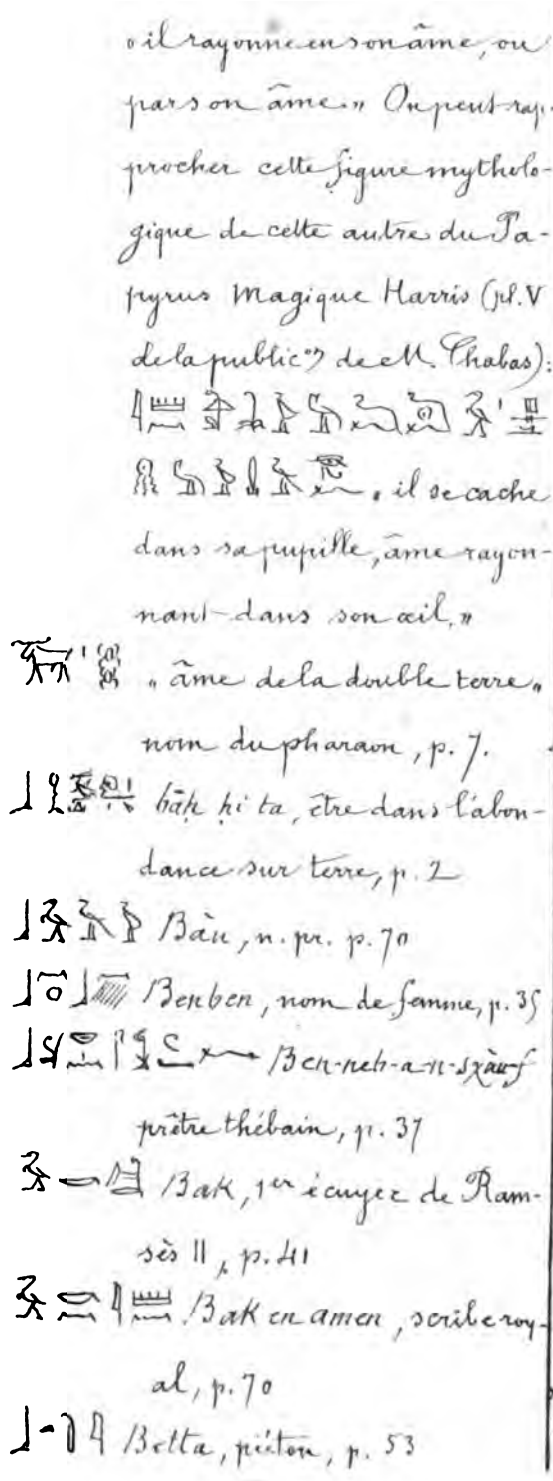 « il rayonne en son âme, ou
par son âme. » On peut rap-
procher cette figure mytholo-
gique de cette autre du Pa-
pyrus Magique Harris (pl. V
de la public<sup>on</sup> de M. Chabas):
„ il se cache
dans sa pupille, âme rayon-
nant dans son œil. »
„ âme de la double terre „
nom du pharaon, p. 7.
bāḥ ḥi ta, être dans l'abon-
dance sur terre, p. 2
Bàu, n. pr. p. 70
Benben, nom de femme, p. 35
Ben-neb-a-n-sχàu-f
prêtre thébain, p. 37
Bak, 1er écuyer de Ram-
sès II, p. 41
Bak en amen, scribe roy-
al, p. 70
Betta, piéton, p. 53